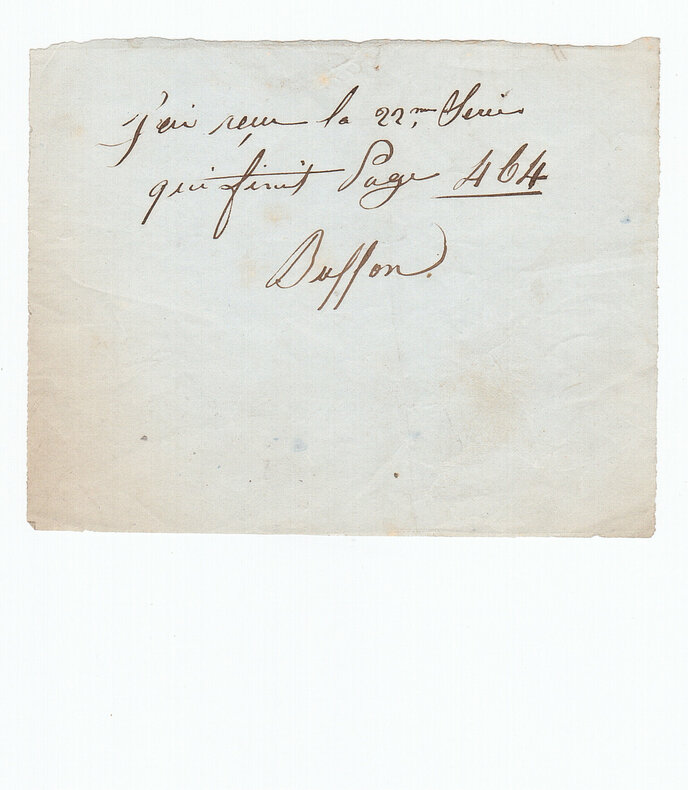 j'ai reçu la 22me Serie
qui finit Page 464
Buffon.